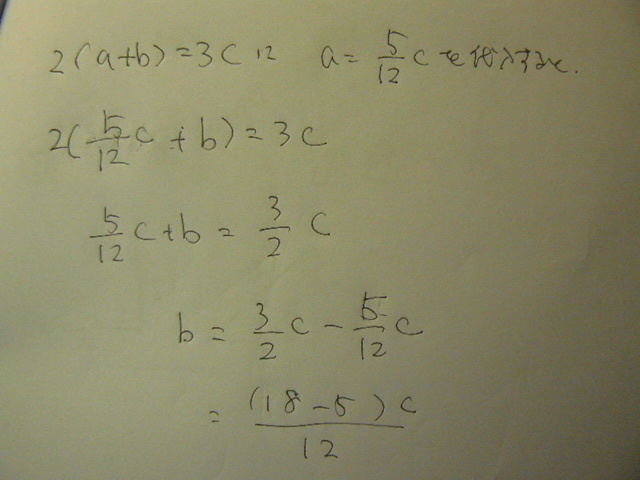 2(a+b)=3c に a=5/12 c を代入すると.
2(5/12 c + b) = 3c
5/12 c + b = 3/2 c
b = 3/2 c - 5/12 c
= (18-5)c/12